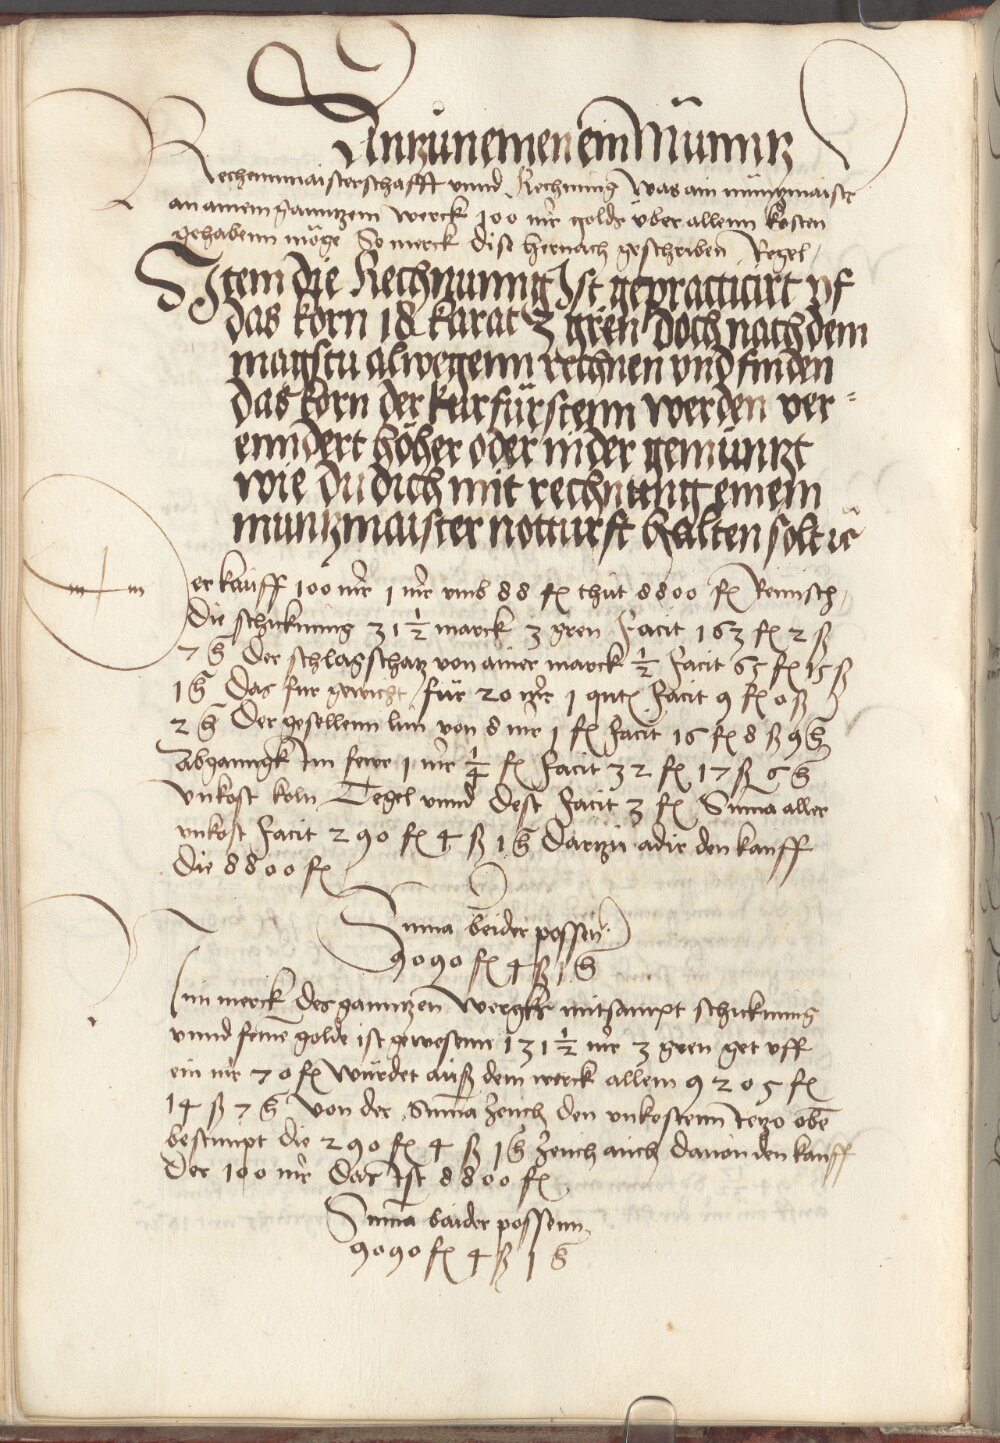 Anzunemen ein Müntz
Rechenmaisterschafft vnnd Rechnung was ain müntzmaister
an ainem gantzem werck 100 mr golds über allenn kosten
gehabenn möge So merck dise hernach geschriben Regel
Item die Rechnunng Ist gepracticirt vf
das korn 18 karat 3 gren Doch nach dem
magstu alwegenn rechnen vnd finden
das korn der kurfürstenn werden ver-
enndert höher oder nider gemüntzt
wie du dich mit rechnung einem
müntzmaister notturft halten solt ic
Der kauff 100 mr 1 mr vmb 88 fl thut 8800 fl Reinisch
Die schickung 31 1/2 marck 3 gren Facit 163 fl 2 ß
7 h Der schlagschatz von ainer marck 1/2 Facit 65 fl 15 ß
1 h Das fur gewicht für 20 mr 1 quet Facit 9 fl 0 ß
2 h Der gesellenn lun von 8 mr 1 fl Facit 16 fl 8 ß 9 h
Abganngk Im fewr 1 mr 1/4 fl Facit 32 fl 17 ß 6 h
Vnkost koln Tegel vnnd Test Facit 3 fl Suma aller
vnkost Facit 290 fl 4 ß 1 h Dartzu adir den kauff
die 8800 fl
Suma beider possen
9090 fl 4 ß 1 h
Nun merck des ganntzen Wergks mitsampt schickung
vnnd feine golde ist gewesenn 131 1/2 mr 3 gren get vff
ein mr 70 fl würdet auß dem werck allem 9205 fl
14 ß 7 h Von der Suma zeuch den vnkostenn yetzo obe
bestimpt die 290 fl 4 ß 1 h zeuch auch dauon den kauff
Der 100 mr Das Ist 8800 fl
Suma baider possenn
9090 fl 4 ß 1 h